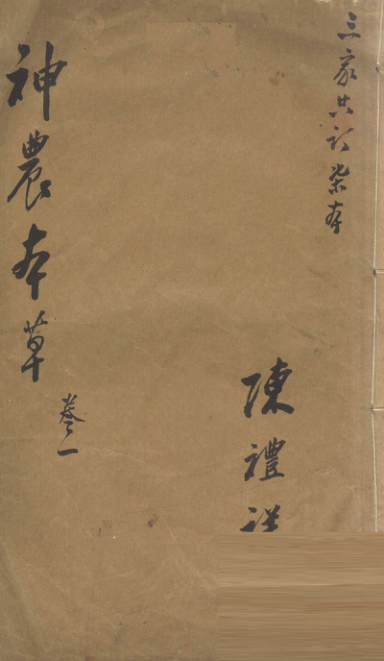 三家共訂柴本
陳禮
神農本草 卷一